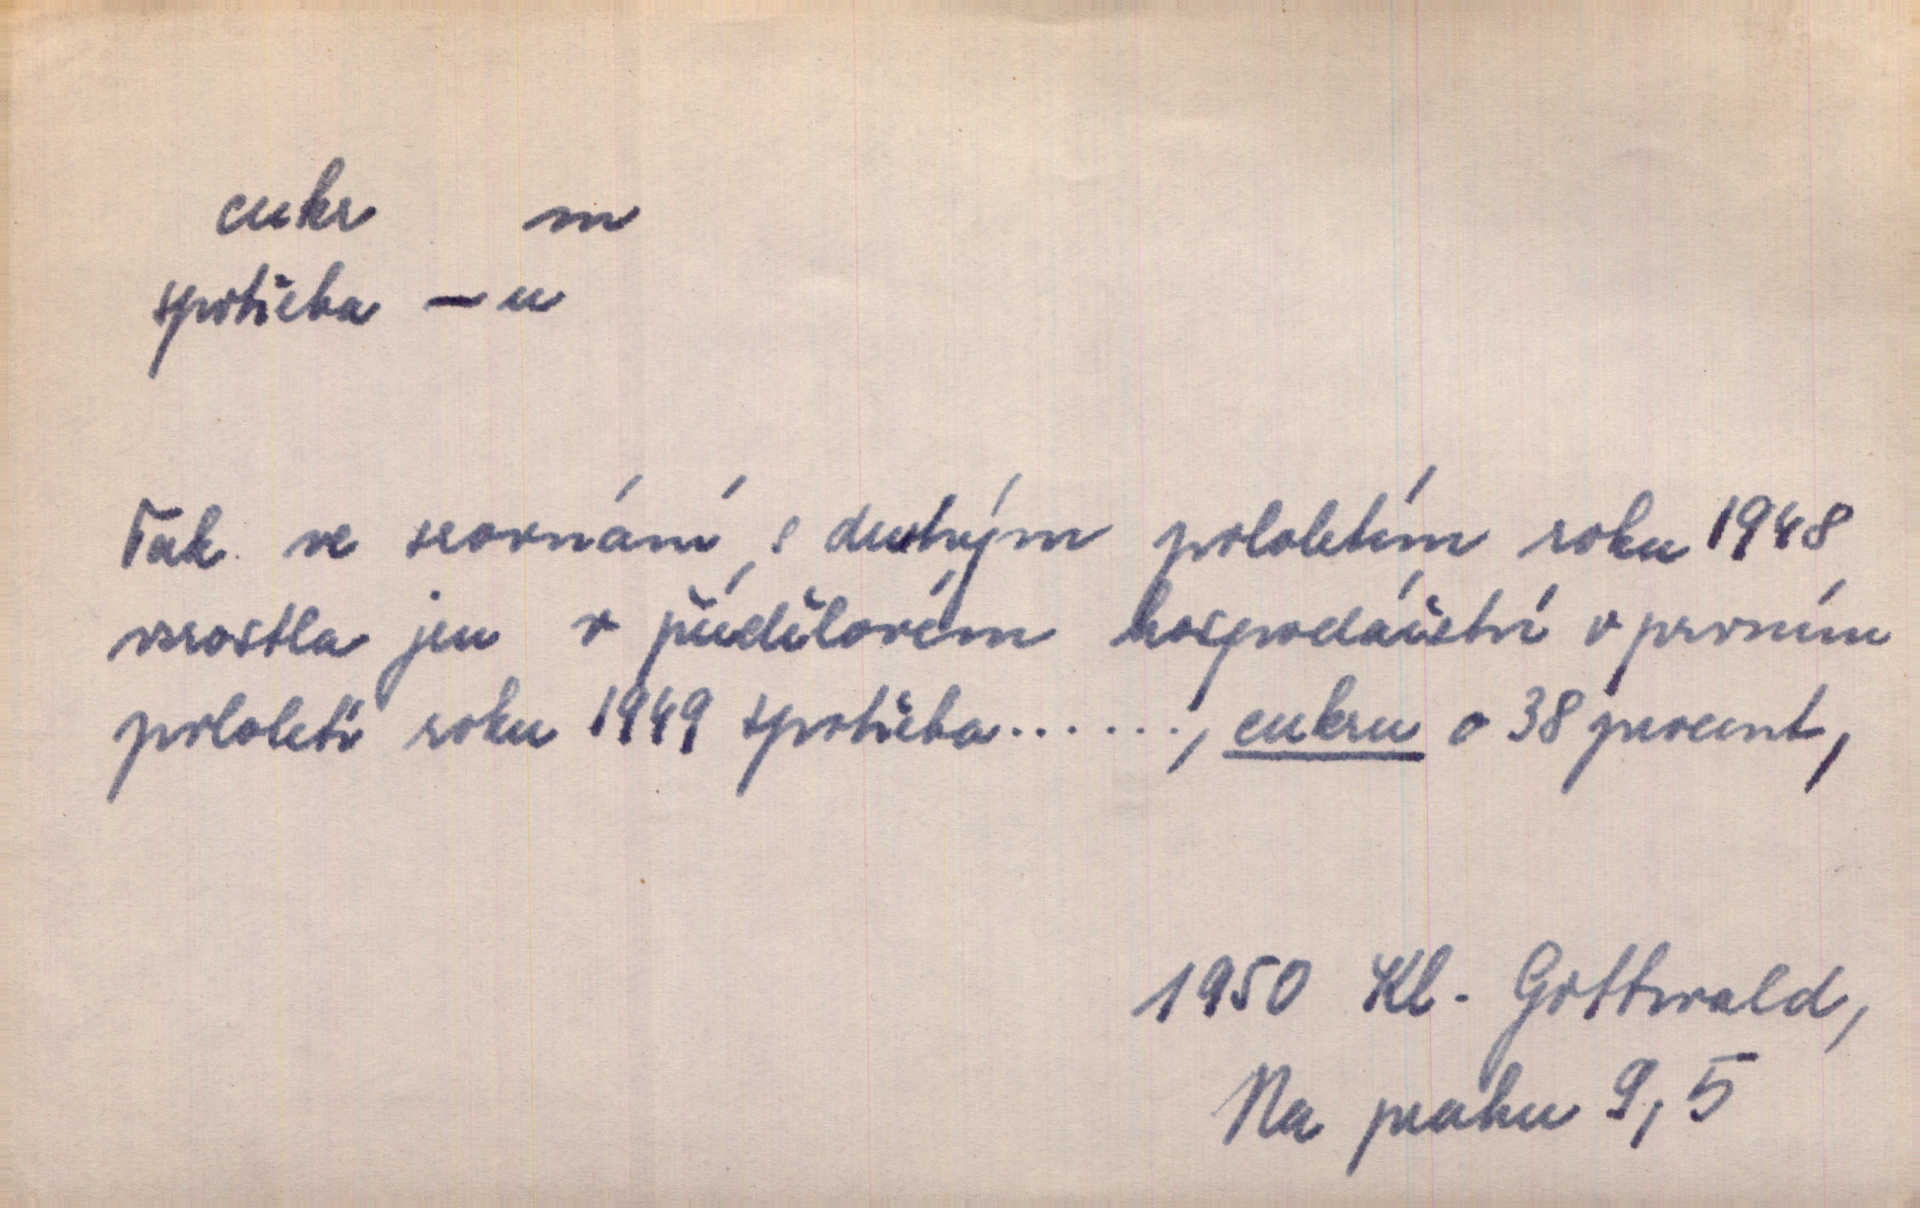 cukr m
spotřeba – u
Tak ve srovnání s druhým pololetím roku 1948
vzrostla jen v přídělovém hospodářství v prvním
pololetí roku 1949 spotřeba......, cukru o 38 procent,
1950 Kl. Gottwald,
Na prahu 9, 5